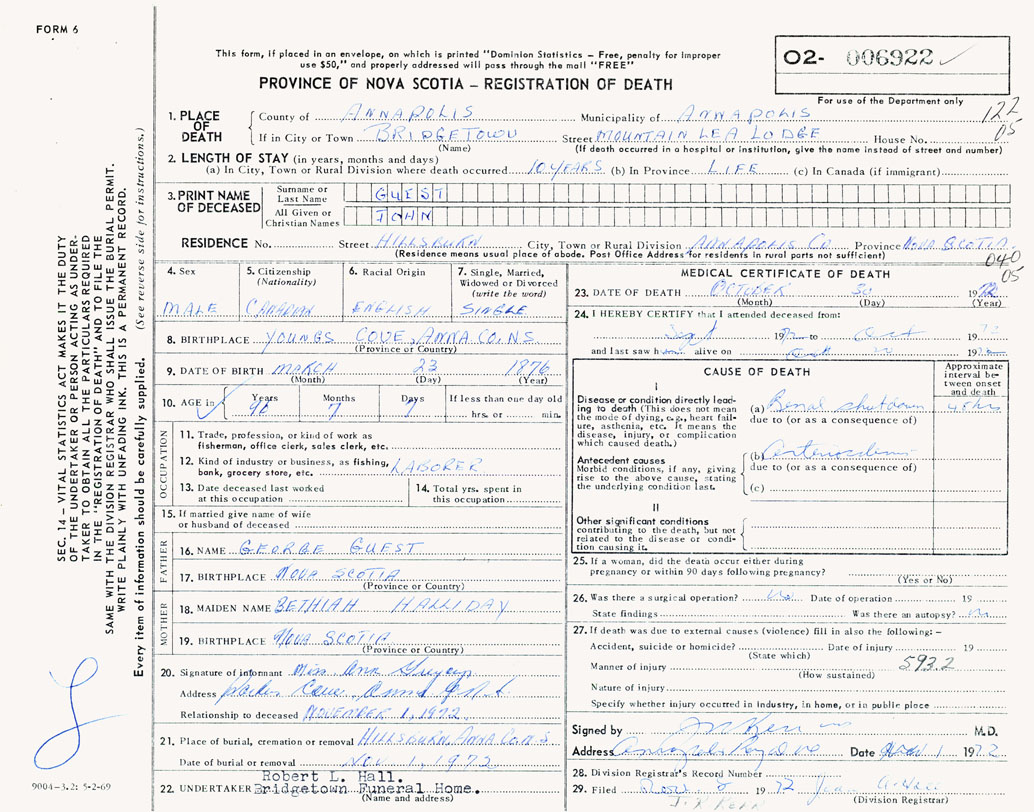 FORM 6
This form, if placed in an envelope, on which is printed "Dominion Statistics – Free, penalty for improper
use $50," and properly addressed will pass through the mail "FREE"
PROVINCE OF NOVA SCOTIA – REGISTRATION OF DEATH
O2- 006922
For use of the Department only
122
05
1. PLACE OF DEATH
County of ANNAPOLIS Municipality of ANNAPOLIS
If in City or Town BRIDGETOWN Street MOUNTAIN LEA LODGE House No.
(Name) (If death occurred in a hospital or institution, give the name instead of street and number)
2. LENGTH OF STAY (in years, months and days)
(a) In City, Town or Rural Division where death occurred 10 YEARS (b) In Province LIFE (c) In Canada (if immigrant)
3. PRINT NAME OF DECEASED
Surname or Last Name GUEST
All Given or Christian Names JOHN
RESIDENCE No. Street HILLSBURN City, Town or Rural Division ANNAPOLIS CO Province NOVA SCOTIA
(Residence means usual place of abode. Post Office Address for residents in rural parts not sufficient)
040
05
4. Sex
MALE
5. Citizenship
(Nationality)
CANADIAN
6. Racial Origin
ENGLISH
7. Single, Married,
Widowed or Divorced
(write the word)
SINGLE
8. BIRTHPLACE YOUNGS COVE, ANNA CO. NS
(Province or Country)
9. DATE OF BIRTH MARCH 23 1876
(Month) (Day) (Year)
10. AGE in Years Months Days If less than one day old
96 7 7 hrs. or min.
OCCUPATION
11. Trade, profession, or kind of work as
fisherman, office clerk, sales clerk, etc.
12. Kind of industry or business, as fishing,
bank, grocery store, etc. LABORER
13. Date deceased last worked
at this occupation
14. Total yrs. spent in
this occupation
15. If married give name of wife
or husband of deceased
FATHER
16. NAME GEORGE GUEST
17. BIRTHPLACE NOVA SCOTIA
(Province or Country)
MOTHER
18. MAIDEN NAME BETHIAH HALLIDAY
19. BIRTHPLACE NOVA SCOTIA
(Province or Country)
20. Signature of informant Miss Ann
Address Cove, Anna
Relationship to deceased NOVEMBER 1, 1972
21. Place of burial, cremation or removal HILLSBURN, ANNA CO. N S
Date of burial or removal NOV. 1, 1972
22. UNDERTAKER Robert L. Hall.
Bridgetown Funeral Home.
(Name and address)
MEDICAL CERTIFICATE OF DEATH
23. DATE OF DEATH OCTOBER 30 1972
(Month) (Day) (Year)
24. I HEREBY CERTIFY that I attended deceased from:
Sept 19 Oct 1972
and last saw h alive on Oct 19
CAUSE OF DEATH
Approximate
interval be-
tween onset
and death
I
Disease or condition directly lead-
ing to death (This does not mean
the mode of dying, e.g., heart fail-
ure, asthenia, etc. It means the
disease, injury, or complication
which caused death.)
(a) Renal shutdown 48 hrs
due to (or as a consequence of)
Antecedent causes
Morbid conditions, if any, giving
rise to the above cause, stating
the underlying condition last.
(b)
due to (or as a consequence of)
(c)
II
Other significant conditions
contributing to the death, but not
related to the disease or condi-
tion causing it.
25. If a woman, did the death occur either during
pregnancy or within 90 days following pregnancy?
(Yes or No)
26. Was there a surgical operation? No Date of operation 19
State findings Was there an autopsy? no
27. If death was due to external causes (violence) fill in also the following: –
Accident, suicide or homicide? Date of injury 19
(State which)
593.2
Manner of injury
(How sustained)
Nature of injury
Specify whether injury occurred in industry, in home, or in public place
Signed by M.D.
Address Annapolis Royal Date Nov 1 1972
28. Division Registrar's Record Number
29. Filed Nov. 19 72
(Division Registrar)
SEC. 14 – VITAL STATISTICS ACT MAKES IT THE DUTY
OF THE UNDERTAKER OR PERSON ACTING AS UNDER-
TAKER TO OBTAIN ALL THE PARTICULARS REQUIRED
IN THE "REGISTRATION OF DEATH" AND TO FILE THE
SAME WITH THE DIVISION REGISTRAR WHO SHALL ISSUE THE BURIAL PERMIT.
WRITE PLAINLY WITH UNFADING INK. THIS IS A PERMANENT RECORD.
Every item of information should be carefully supplied. (See reverse side for instructions.)
9004-3.2: 5-2-69